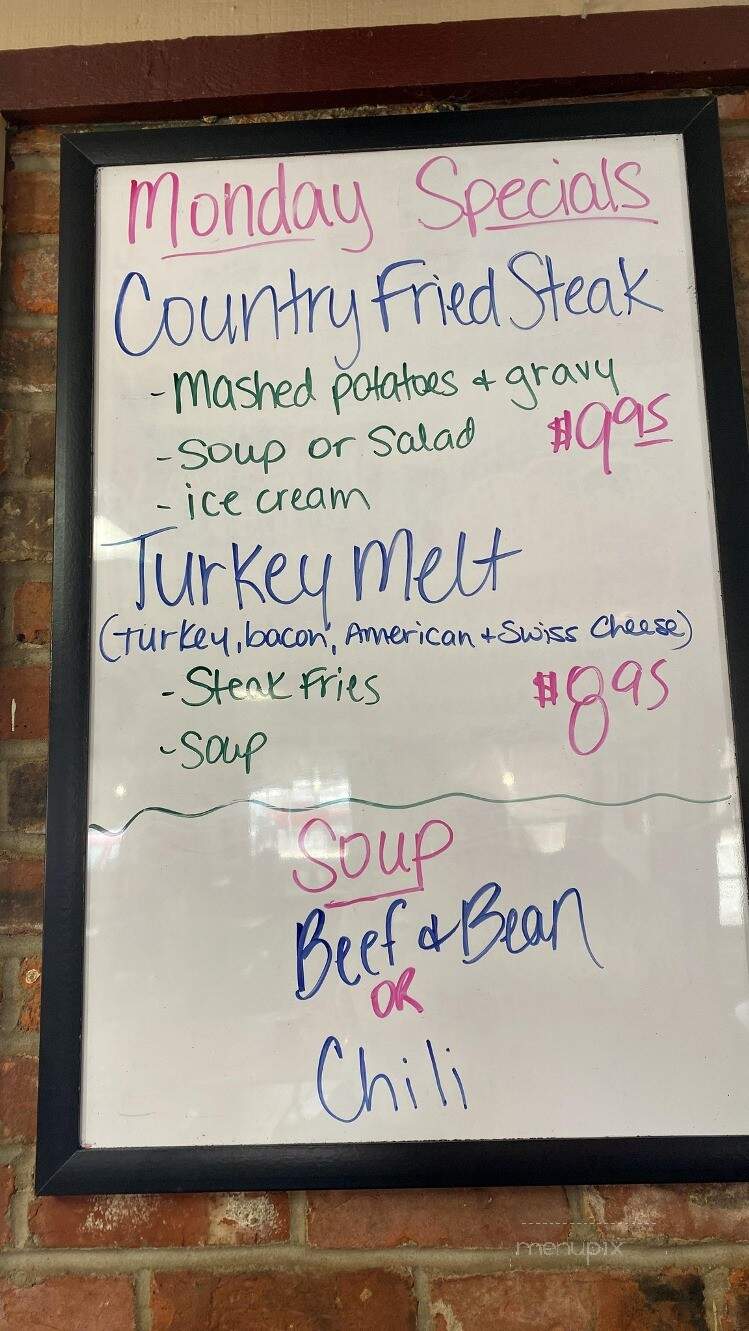 Monday Specials
Country Fried Steak
- Mashed potatoes + gravy
- Soup or Salad $9.95
- ice cream
Turkey Melt
(turkey, bacon, American + Swiss Cheese)
- Steak Fries $8.95
- Soup
Soup
Beef & Bean
OR
Chili
menupix